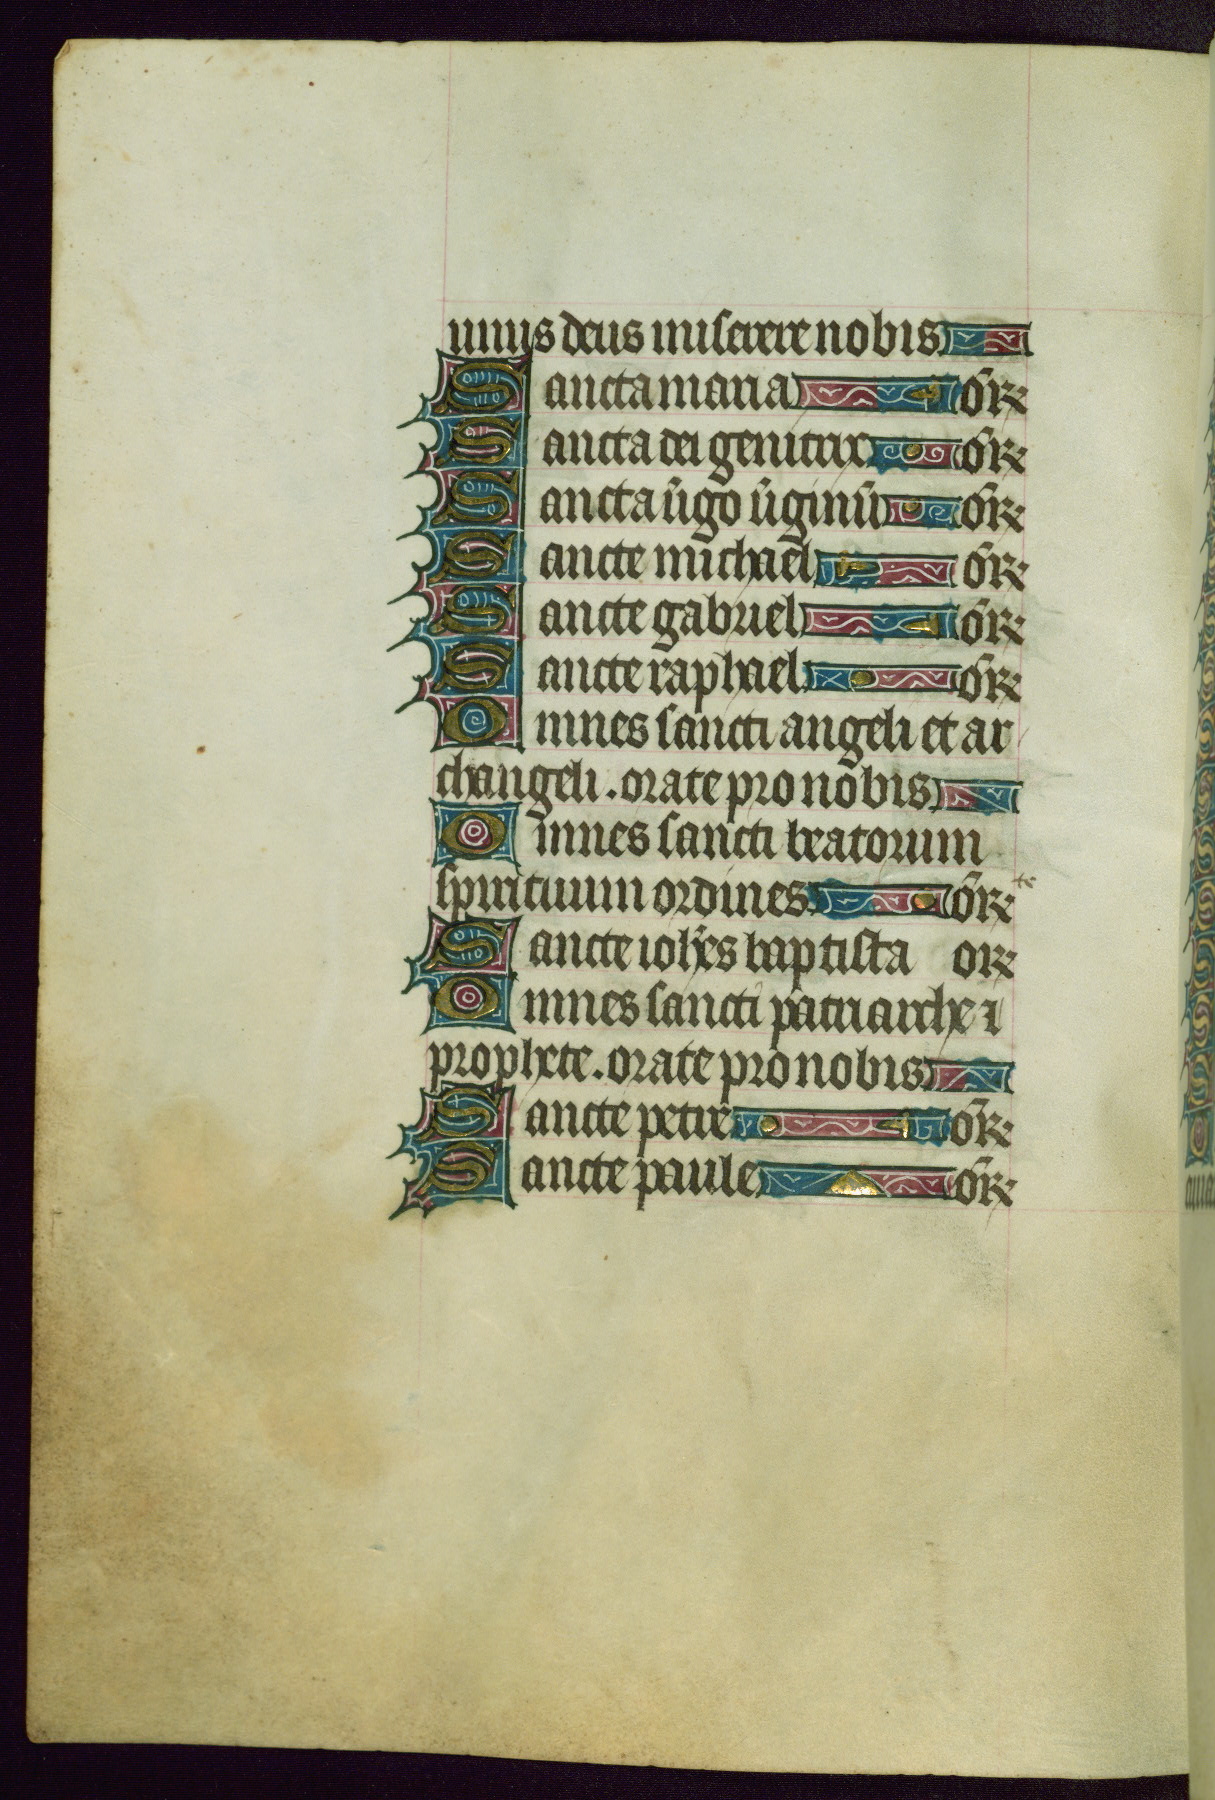 unus deus miserere nobis
Sancta maria or
Sancta dei genitrix or
Sancta ūgo ūginū or
Sancte michael or
Sancte gabriel or
Sancte raphael or
Omnes sancti angeli et ar
changeli. orate pro nobis
Omnes sancti beatorum
spirituum ordines or te
Sancte ioh̄es baptista or
Omnes sancti patriarche ⁊
prophete. orate pro nobis
Sancte petre or
Sancte paule or